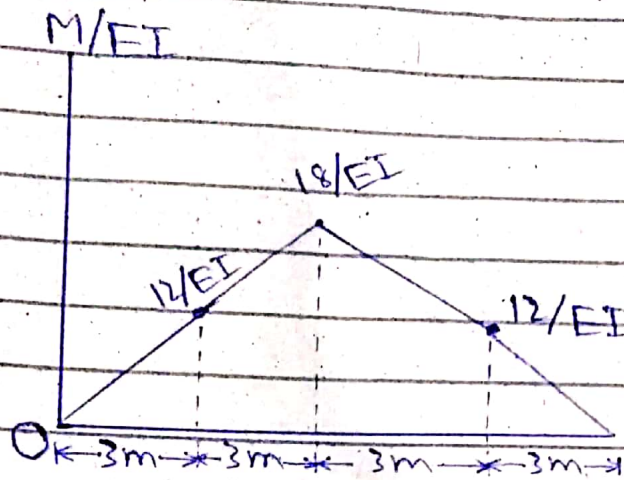 M/EI
18/EI
12/EI
12/EI
O
3m 3m 3m 3m